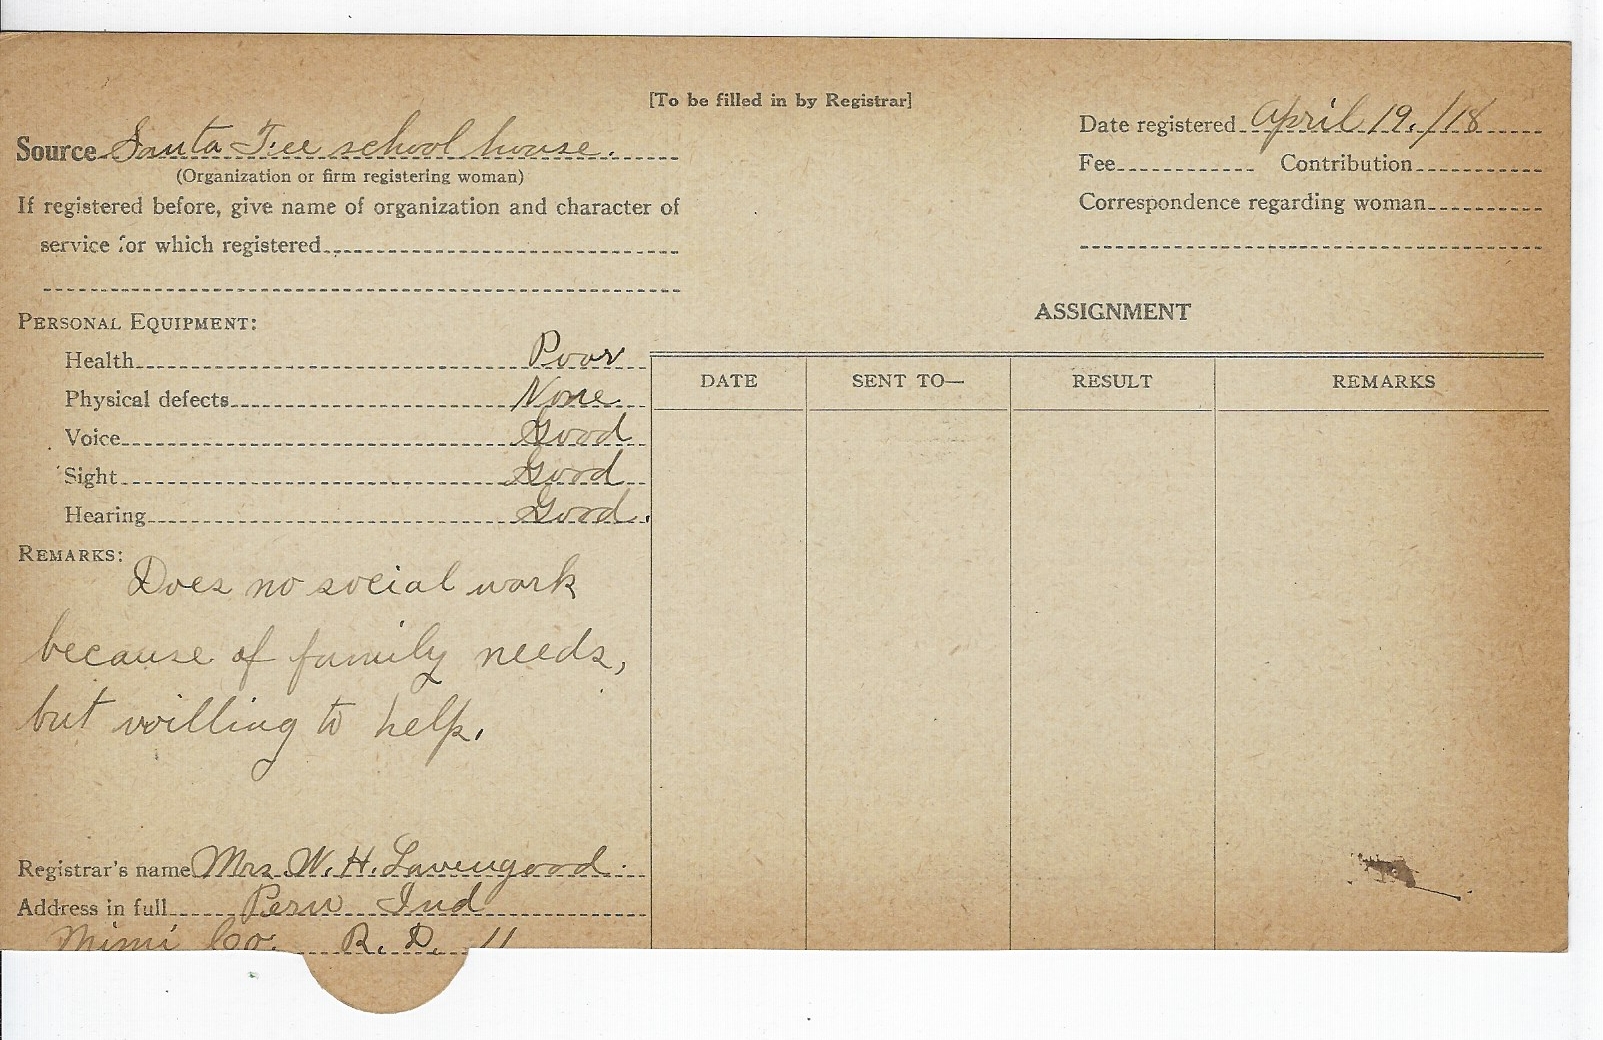 [To be filled in by Registrar]
Source Santa Fee school house.
(Organization or firm registering woman)
If registered before, give name of organization and character of
service for which registered
Date registered April 19, /18
Fee Contribution
Correspondence regarding woman
PERSONAL EQUIPMENT:
Health Poor
Physical defects None
Voice Good
Sight Good
Hearing Good.
REMARKS:
Does no social work
because of family needs,
but willing to help.
Registrar's name Mrs. W. H. Lavengood.
Address in full Peru Ind
Mimi Co. R. D. 11
ASSIGNMENT
DATE SENT TO— RESULT REMARKS